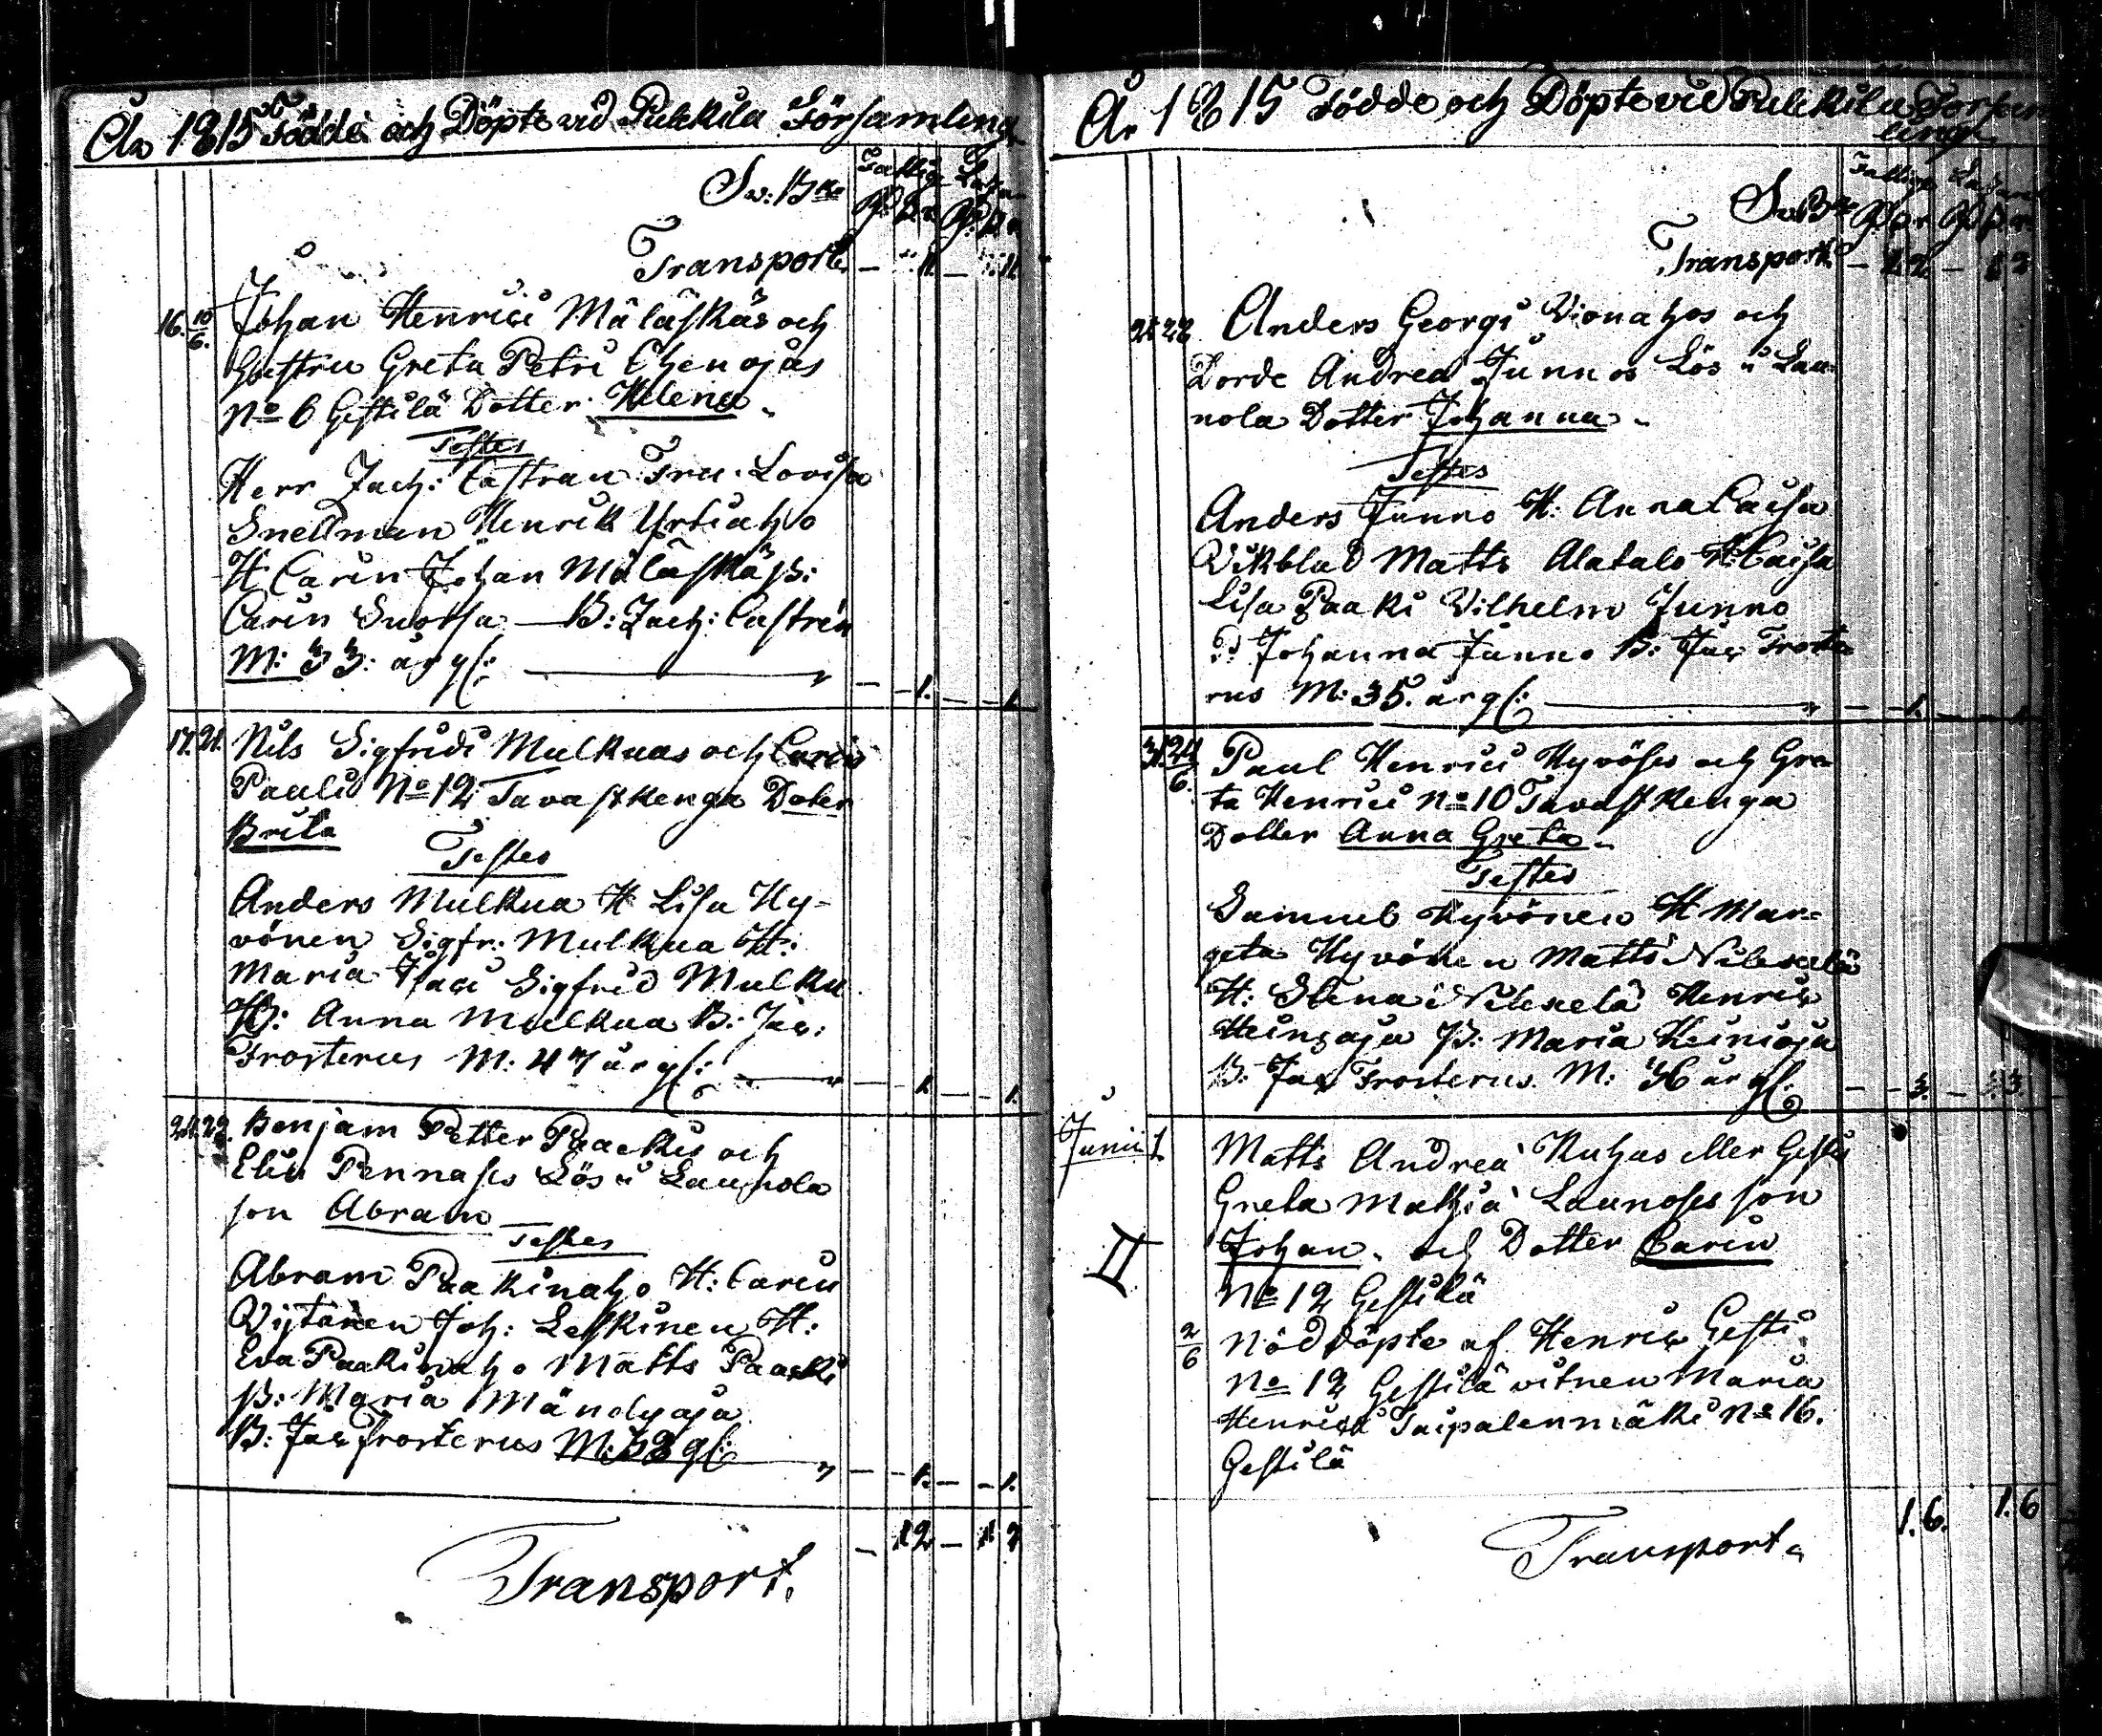 År 1815 Födde och Döpte vid Pulkkila Församling
Sv: B:co
Fattige
Lazar
Transport – 11. – 11.
16. 10/6. Johan Henrici Mäläskäs och
Hustru Greta Petri Ehenojas
No 6 Gestilä Dotter Helena
Testes
Herr Zach: Castran Fru Lovisa
Snellman Henrik Urtiaho
H Carin Johan Mäläskä P:
Carin Suotsa — B: Zach: Castrén
M: 33: år gl:
– – 1. – – 1.
17. 21. Nils Sigfridi Mulkuas och Carin
Pauli No 12 Tavastkenga Doter
Brita
Testes
Anders Mulkua H Lisa Hy-
vönen Sigfr. Mulkua H:
Maria Sigfrid Mulku
P: Anna Mulkua B: Jac:
Frosterus M: 47 år gl:
– – 1 – – 1.
21. 22. Benjam Petter Paackis och
Elin Pennases Lös i Launola
son Abram
Testes
Abram Paakinaho H: Carin
Vijtanen Joh: Leskinen H:
Eva Paakinaho Matts Paacki
P: Maria Mändyaja
B: Jac Frosterus M: 38 gl:
– – 1. – – 1.
– 12 – 12
Transport.
År 1815 Födde och Döpte vid Pulkkila Försam
ling
Sv: B:co
Fattige Lazaret
Transport – 12 – 12
21 22 Anders Georgi Vionahos och
Dorde Andreæ Junnos Lös i Lau-
nola Dotter Johanna
Testes
Anders Junno H: Anna Caisa
Vikblad Matts Alatalo H: Caisa
Lisa Paaki Vilhelm Junno
P: Johanna Junno B: Jac Froste
rus M: 35. år gl:
– – 1. –
31. 24/6. Paul Henrici Hyvöses och Gre
ta Henrici No 10 Tavastkenga
Dotter Anna Greta
Testes
Samuel Hyvönen H Mar=
geta Hyvönen Matts Nikkelä
H: Stena Henric
Heinoaja P: Maria Heinioja
B: Jac Frosterus. M: 36 år gl:
– – 3. – 3.
Junii 1. Matts Andreæ Kuhas eller Gesti
Greta Mathiæ Launoses son
Johan. och Dotter Carin
II
No 12 Gestilä
2/6 Nöddöpte af Henric Gesti
No 12 Gestilä vitnen Maria
Taipalenmäki No 16.
Gestilä
1. 6. 1. 6
Transport